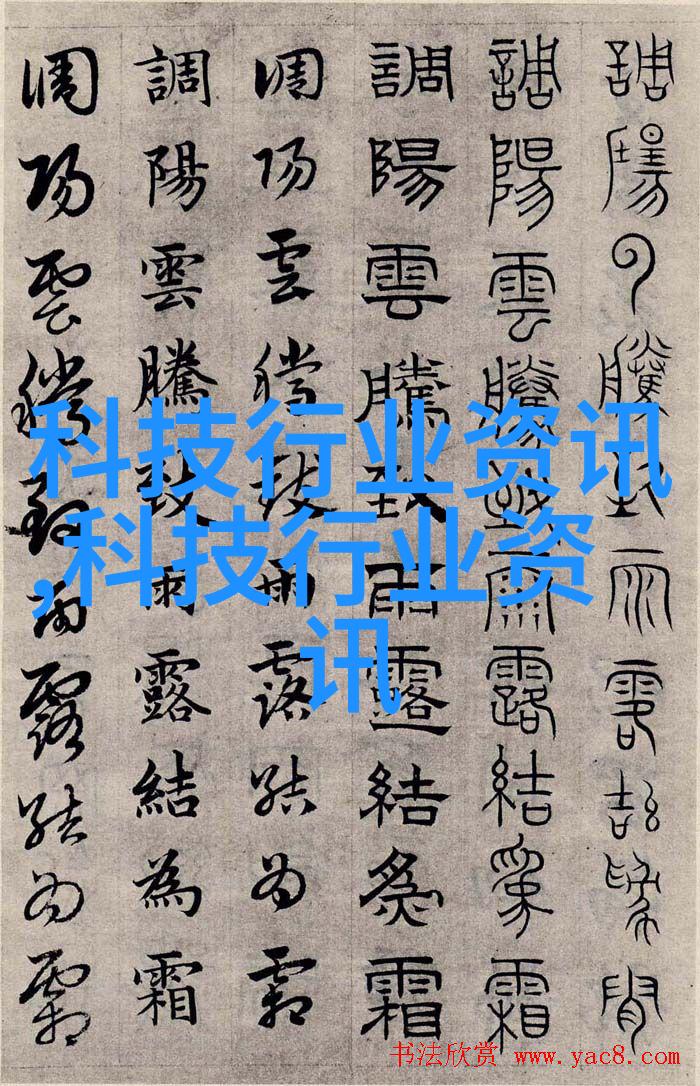 調陽雲騰致雨露結為霜
調陽雲騰致雨露結為霜
調陽雲騰致雨露結為霜
調陽雲騰致雨露結為霜
調陽雲騰致雨露結為霜
調陽雲騰致雨露結為霜
科技行业资讯
,科技行业资
讯
书法欣赏 www.yac8.com